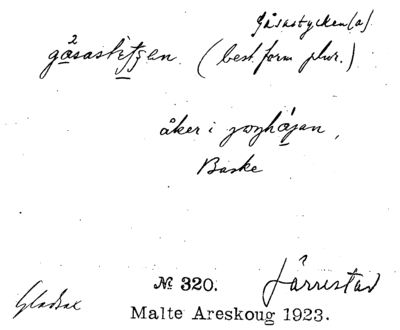 Gåsastycken(a).
gåsastitsen. (best. form plur.)
åker i
Baske
Gladsax
№ 320.
Järrestad
Malte Areskoug 1923.